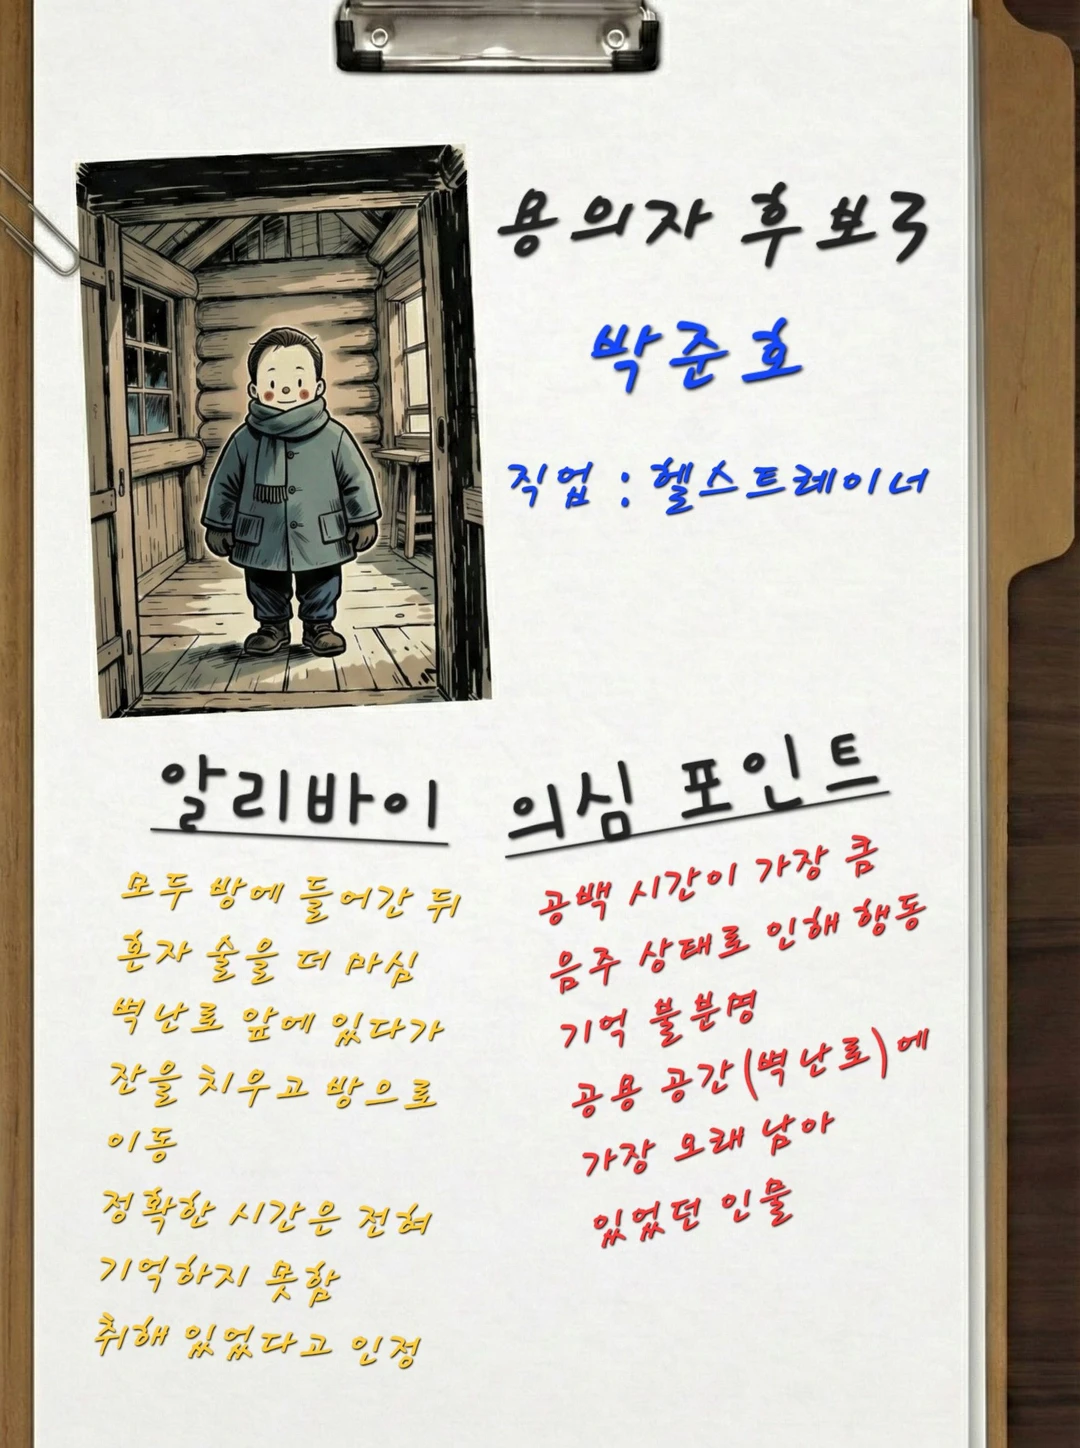 용의자 후보3
박준호
직업 : 헬스트레이너
알리바이
모두 방에 들어간 뒤
혼자 술을 더 마심
벽난로 앞에 있다가
잔을 치우고 방으로
이동
정확한 시간은 전혀
기억하지 못함
취해 있었다고 인정
의심 포인트
공백 시간이 가장 큼
음주 상태로 인해 행동
기억 불분명
공용 공간(벽난로)에
가장 오래 남아
있었던 인물